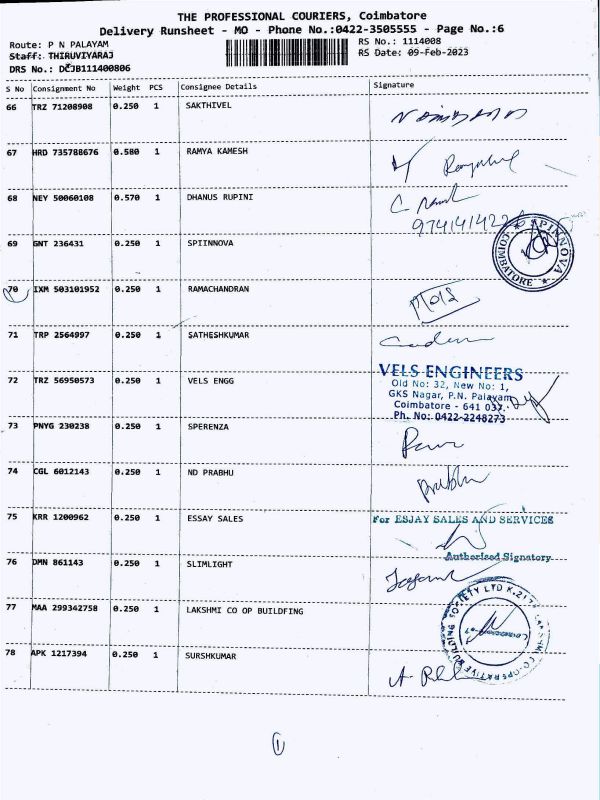 THE PROFESSIONAL COURIERS, Coimbatore
Delivery Runsheet - MO - Phone No.:0422-3505555 - Page No.:6
Route: P N PALAYAM
Staff: THIRUVIYARAJ
DRS No.: DCJB111400806
RS No.: 1114008
RS Date: 09-Feb-2023
S No Consignment No Weight PCS Consignee Details Signature
66 TRZ 71208908 0.250 1 SAKTHIVEL
67 HRD 735788676 0.580 1 RAMYA KAMESH
68 NEY 50060108 0.570 1 DHANUS RUPINI
69 GNT 236431 0.250 1 SPIINNOVA
COIMBATORE
70 IXM 503101952 0.250 1 RAMACHANDRAN
71 TRP 2564997 0.250 1 SATHESHKUMAR
72 TRZ 56950573 0.250 1 VELS ENGG
VELS ENGINEERS
Old No: 32, New No: 1,
GKS Nagar, P.N. Palayam
Coimbatore - 641 037.
Ph. No: 0422-2248273
73 PNYG 230238 0.250 1 SPERENZA
74 CGL 6012143 0.250 1 ND PRABHU
Prabhu
75 KRR 1200962 0.250 1 ESSAY SALES
For ESJAY SALES AND SERVICES
Authorised Signatory
76 DMN 861143 0.250 1 SLIMLIGHT
77 MAA 299342758 0.250 1 LAKSHMI CO OP BUILDFING
78 APK 1217394 0.250 1 SURSHKUMAR
1